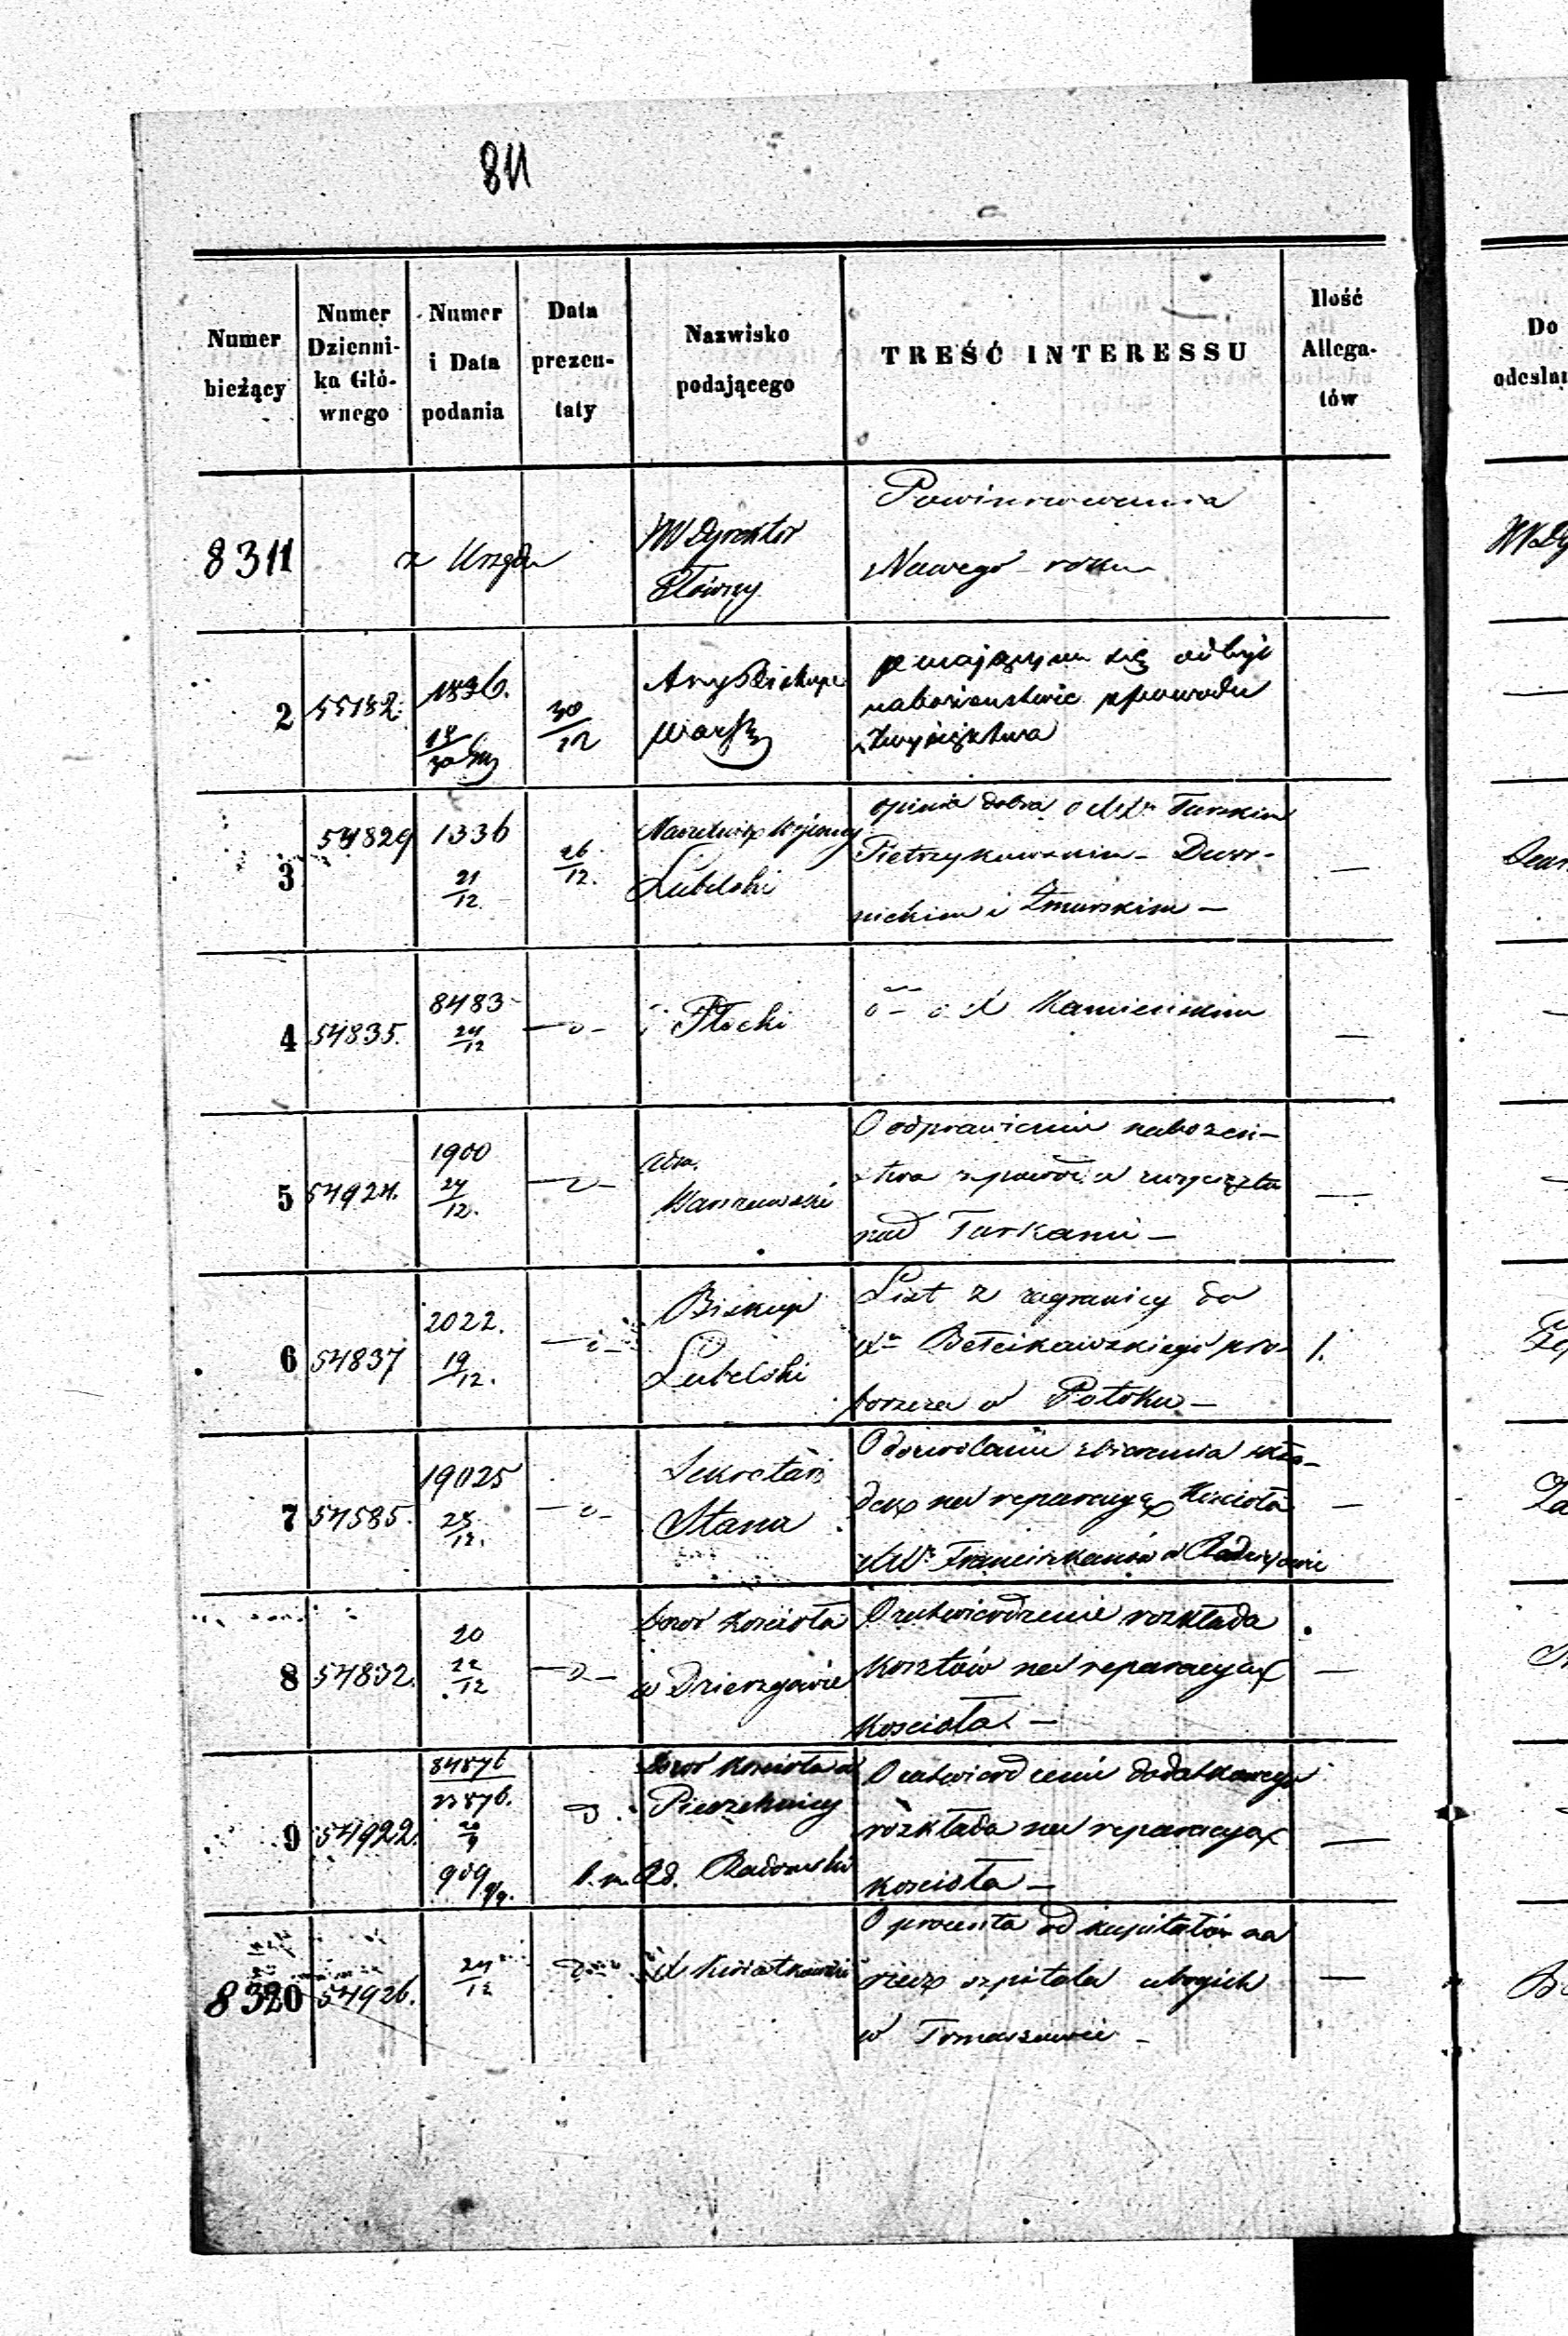 811
Numer bieżący
Numer Dzienni- ka Głó- wnego
Numer i Data podania
Data prezen- taty
Nazwisko podającego
TREŚĆ INTERESSU
Ilość Allega- tów
Do
8311
z Urzędu
Dyrektor
Główny
Powinszowania
Nowego roku
2
55182.
1836.
30/12
ArcyBiskup
Warsz
o mającym się odbyć
nabożeństwie z powodu
Zwycięztwa
3
54829
1336
21/12
26/12.
Naczelnik Wojenny
Lubelski
opinia dobra o
Pietrzykowskim - Dwor-
nickim i Zmurskim -
—
4
54835.
8483
24/12
Płocki
Kamieńskim
—
5
54924.
1900
24/12.
Adm.
Warszawski
O odprawieniu nabożeń-
stwa z powodu zwycięztw
nad Turkami -
—
6
54837
2022.
19/12.
Biskup
Lubelski
List z zagranicy do
Xa Bełcikowskiego pro-
boszcza w Potoku -
1.
7
54585.
19025
Sekretarz
Stanu
O dozwolenie zbierania skła-
dek na reparacyą Kościoła
Franciszkanów w
—
8
54832.
20
22/12
Dozór Kościoła
w Dzierzgowie
O zatwierdzenie rozkładu
kosztów na reparacyą
kościoła -
—
9
54922.
84876
23876.
909
Dozór Kościoła w
Rd. Radomski
O zatwierdzenie dodatkowego
rozkładu na reparacyą
kościoła -
—
8320
54926.
24/12
X Kwiatkowski
O procenta od kapitałów na
rzecz szpitala ubogich
w Tomaszowie -
—